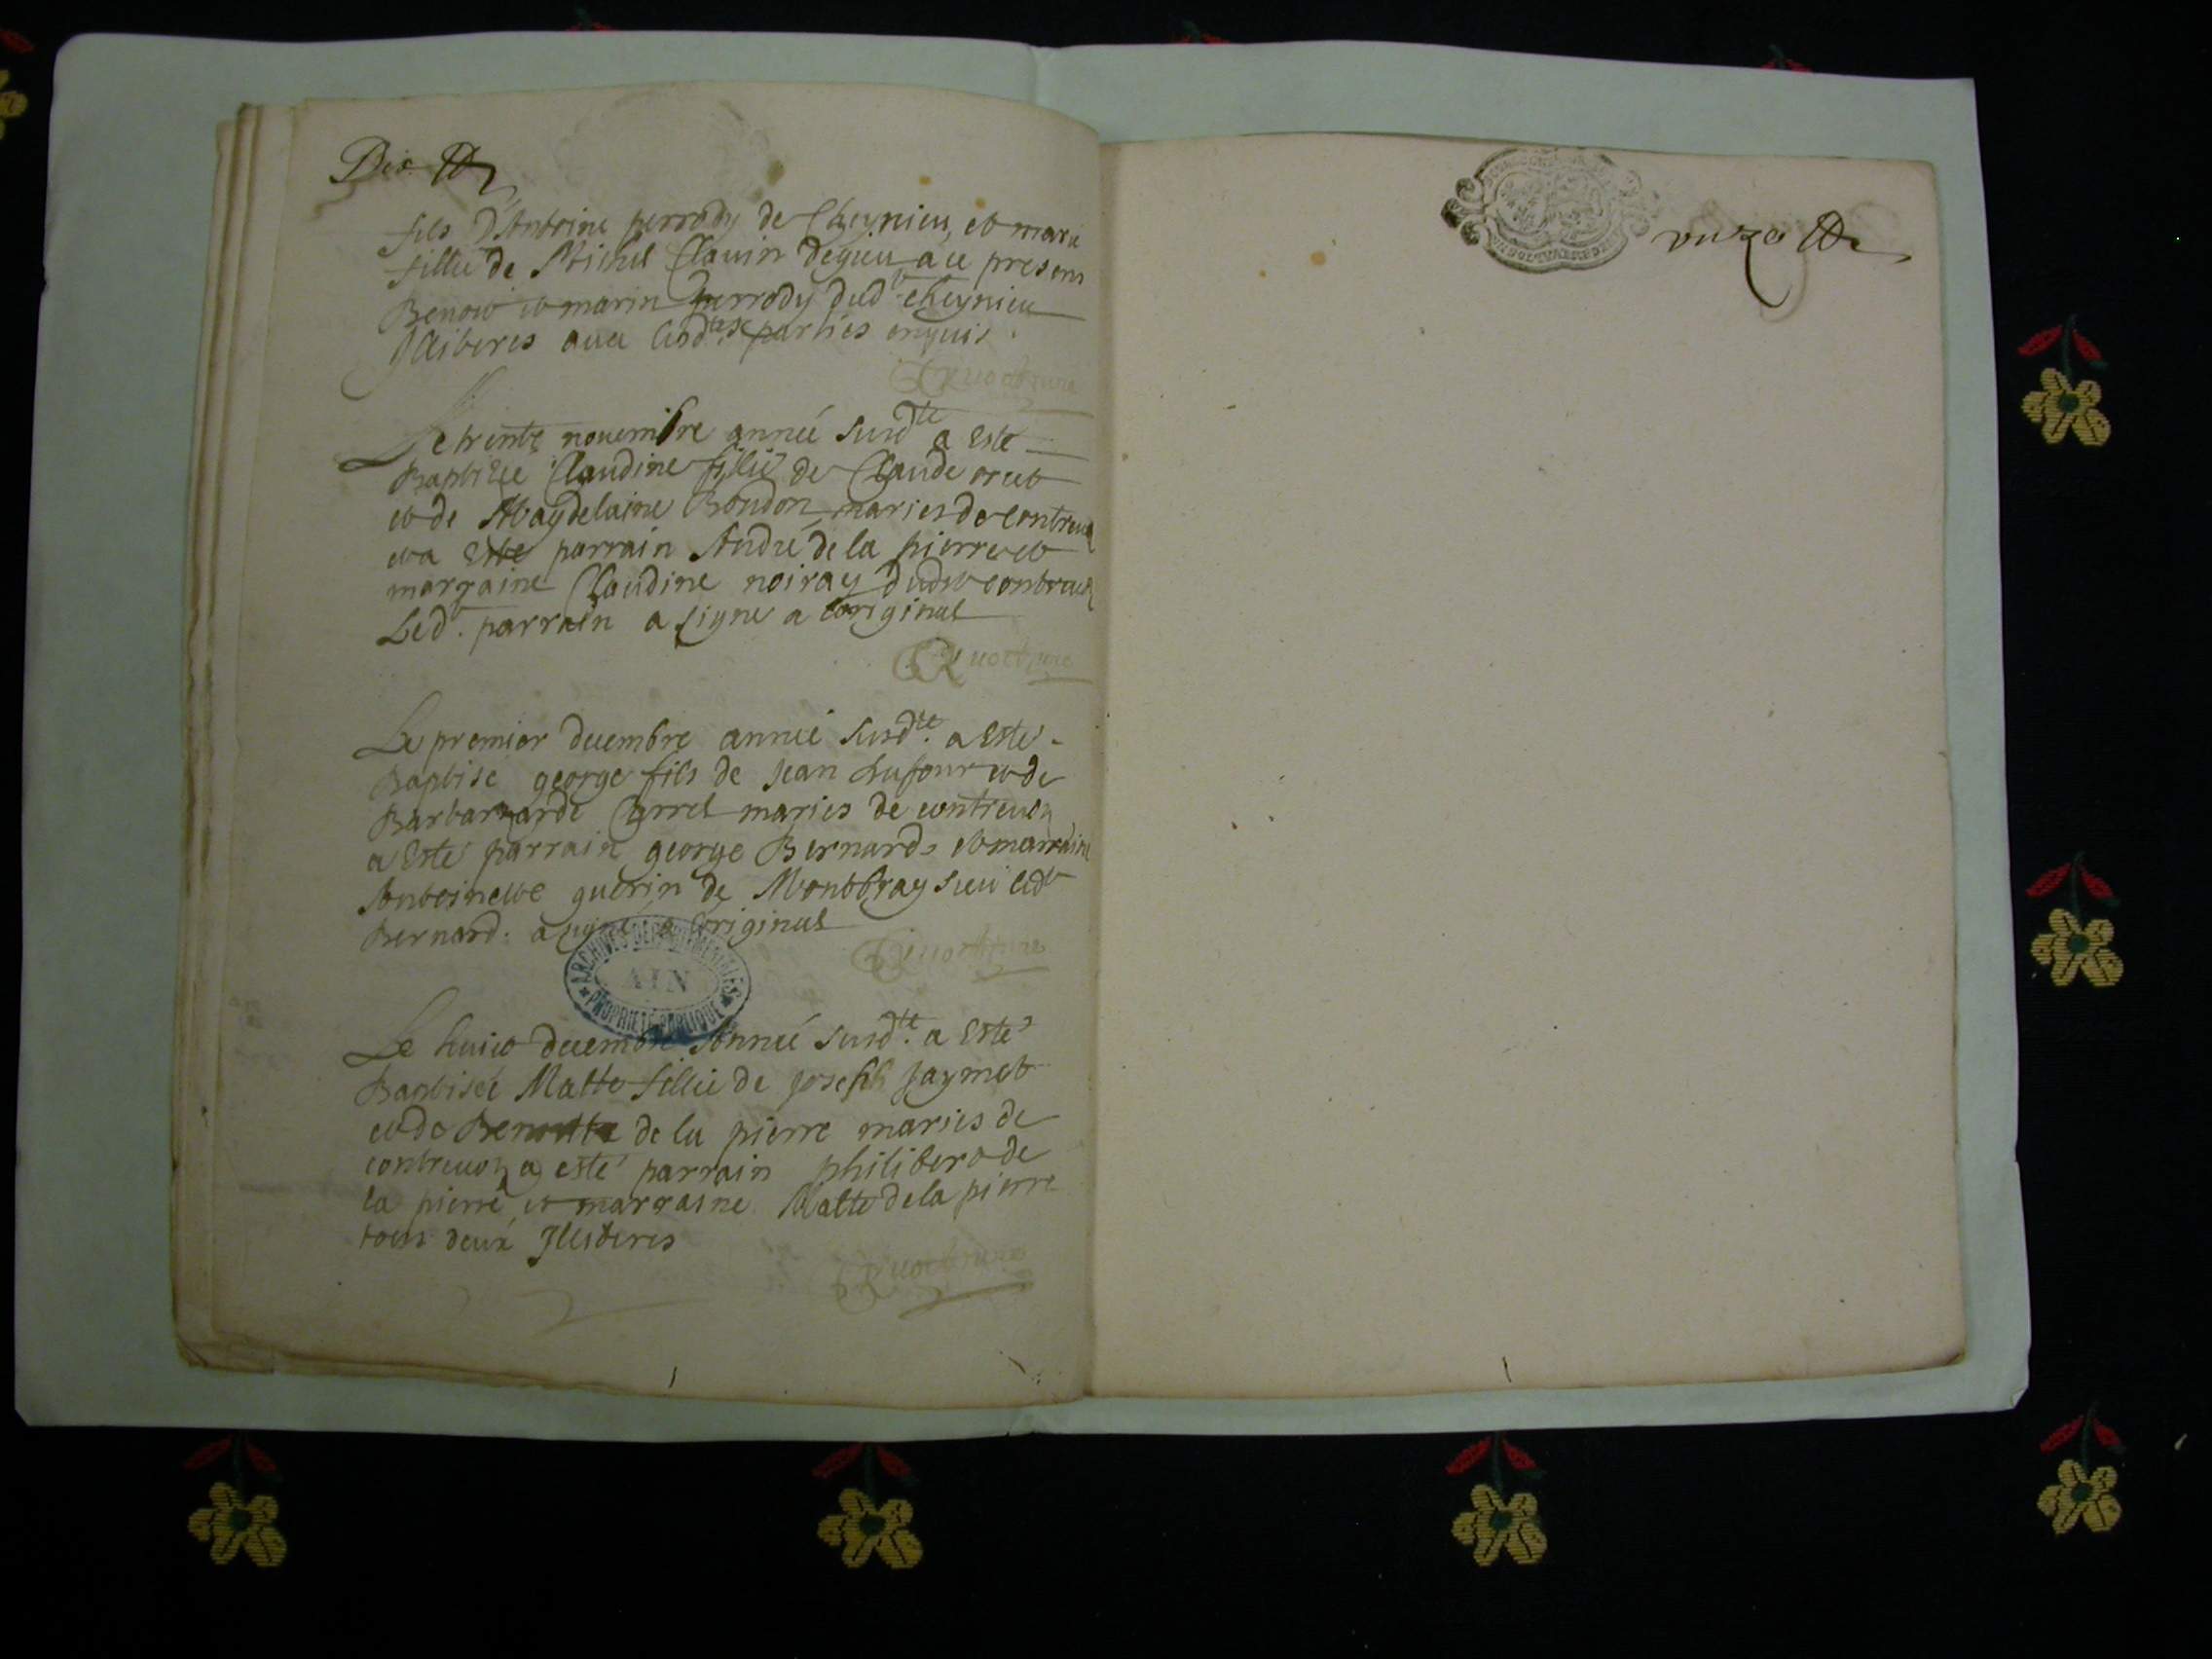 Dix
fils d'Antoine perrody de Cheynieu, et marie
fillie de Michel Clavin degieu a ce presens
Benoit et marin perrody dud.t cheynieu
Illiteres avec lesd.tes parties enquis.
Le trente novembre année susd.te a Esté
Baptisée Claudine fillie de Claude
et de Magdelaine Bondon maries de contrevoz
et a Esté parrain André de la pierre et
marraine Claudine noiray dudit contrevoz
Led.t parrain a signe a loriginal
Le premier decembre année susd.te a Esté
Baptise george fils de Jean dufour et de
Carrel maries de contrevoz
a Esté parrain george Bernard et marraine
Antoinette guerin de led.t
Bernard a signé a loriginal
ARCHIVES DEPARTEMENTALES
AIN
PROPRIETE PUBLIQUE
Le huit decembre Année susd.te a Esté
Baptisée Matte fillie de Joseph Jaymet
et de Benoitte de la pierre maries de
contrevoz a esté parrain philibert de
la pierre et marraine Matte de la pierre
tous deux Illiteres
onze